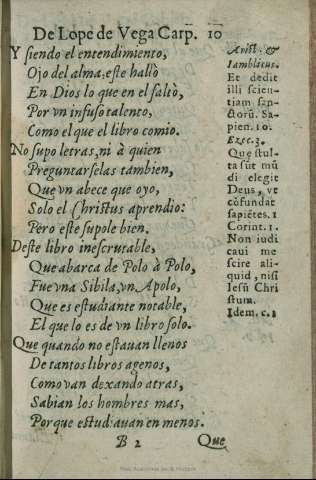 De Lope de Vega Carp̄. 10
Y siendo el entendimiento,
Ojo del alma, este hallò
En Dios lo que en el faltò,
Por vn infuso talento,
Como el que el libro comio.
No supo letras, ni à quien
Preguntarselas tambien,
Que vn abece que oyo,
Solo el Christus aprendio:
Pero este supole bien.
Deste libro inescrutable,
Que abarca de Polo à Polo,
Fue vna Sibila, vn Apolo,
Que es estudiante notable,
El que lo es de vn libro solo.
Que quando no estauan llenos
De tantos libros agenos,
Como van dexando atras,
Sabian los hombres mas,
Porque estudiauan en menos.
B 2 Que
Arist. &
Iamblicus.
Et dedit
illi scien-
tiam san-
ctorũ. Sa-
pien. 10.
Ezec. 3.
Que stul-
ta sũt mũ
di elegit
Deus, vt
cõfundat
sapiẽtes. 1
Corint. 1.
Non iudi
caui me
scire ali-
quid, nisi
Iesũ Chri
stum.
Idem. c. 2
Real Academia de la Historia